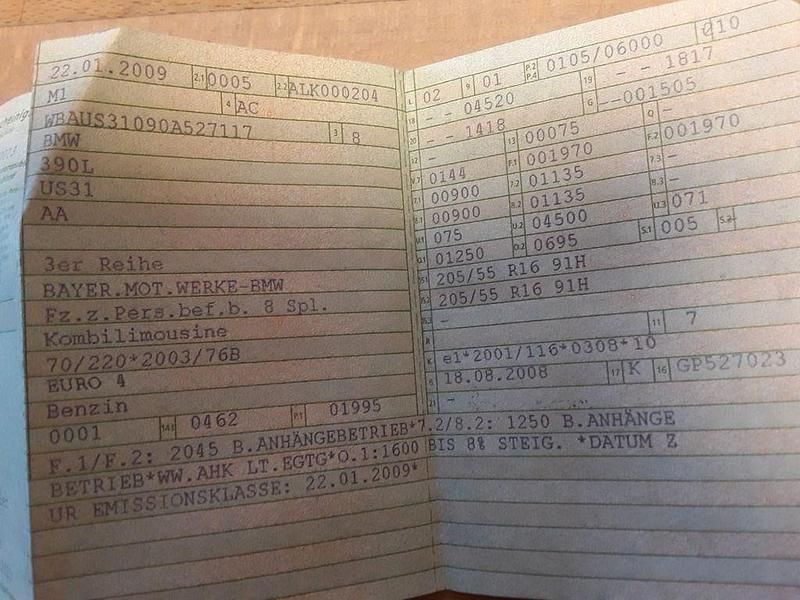 22.01.2009 2.1 0005 2.2 ALK000204
M1 4 AC
WBAUS31090A527117 3 8
BMW
390L
US31
AA
3er Reihe
BAYER.MOT.WERKE-BMW
Fz.z.Pers.bef.b. 8 Spl.
Kombilimousine
70/220*2003/76B
EURO 4
Benzin
0001 14.1 0462 P.1 01995
L 02 9 01 P.2 P.4 0105/06000 010
18 - - 04520 19 - - 1817
20 - - 1418 G --001505
12 - 13 00075 Q -
V.7 0144 F.1 001970 F.2 001970
7.1 00900 7.2 01135 7.3 -
8.1 00900 8.2 01135 8.3 -
U.1 075 U.2 04500 U.3 071
O.1 01250 O.2 0695 S.1 005 S.2
15.1 205/55 R16 91H
15.2 205/55 R16 91H
15.3 -
R 11 7
K e1*2001/116*0308*10
6 18.08.2008 17 K 16 GP527023
21 -
F.1/F.2: 2045 B.ANHÄNGEBETRIEB*7.2/8.2: 1250 B.ANHÄNGE
BETRIEB*WW.AHK LT.EGTG*O.1:1600 BIS 8% STEIG. *DATUM Z
UR EMISSIONSKLASSE: 22.01.2009*